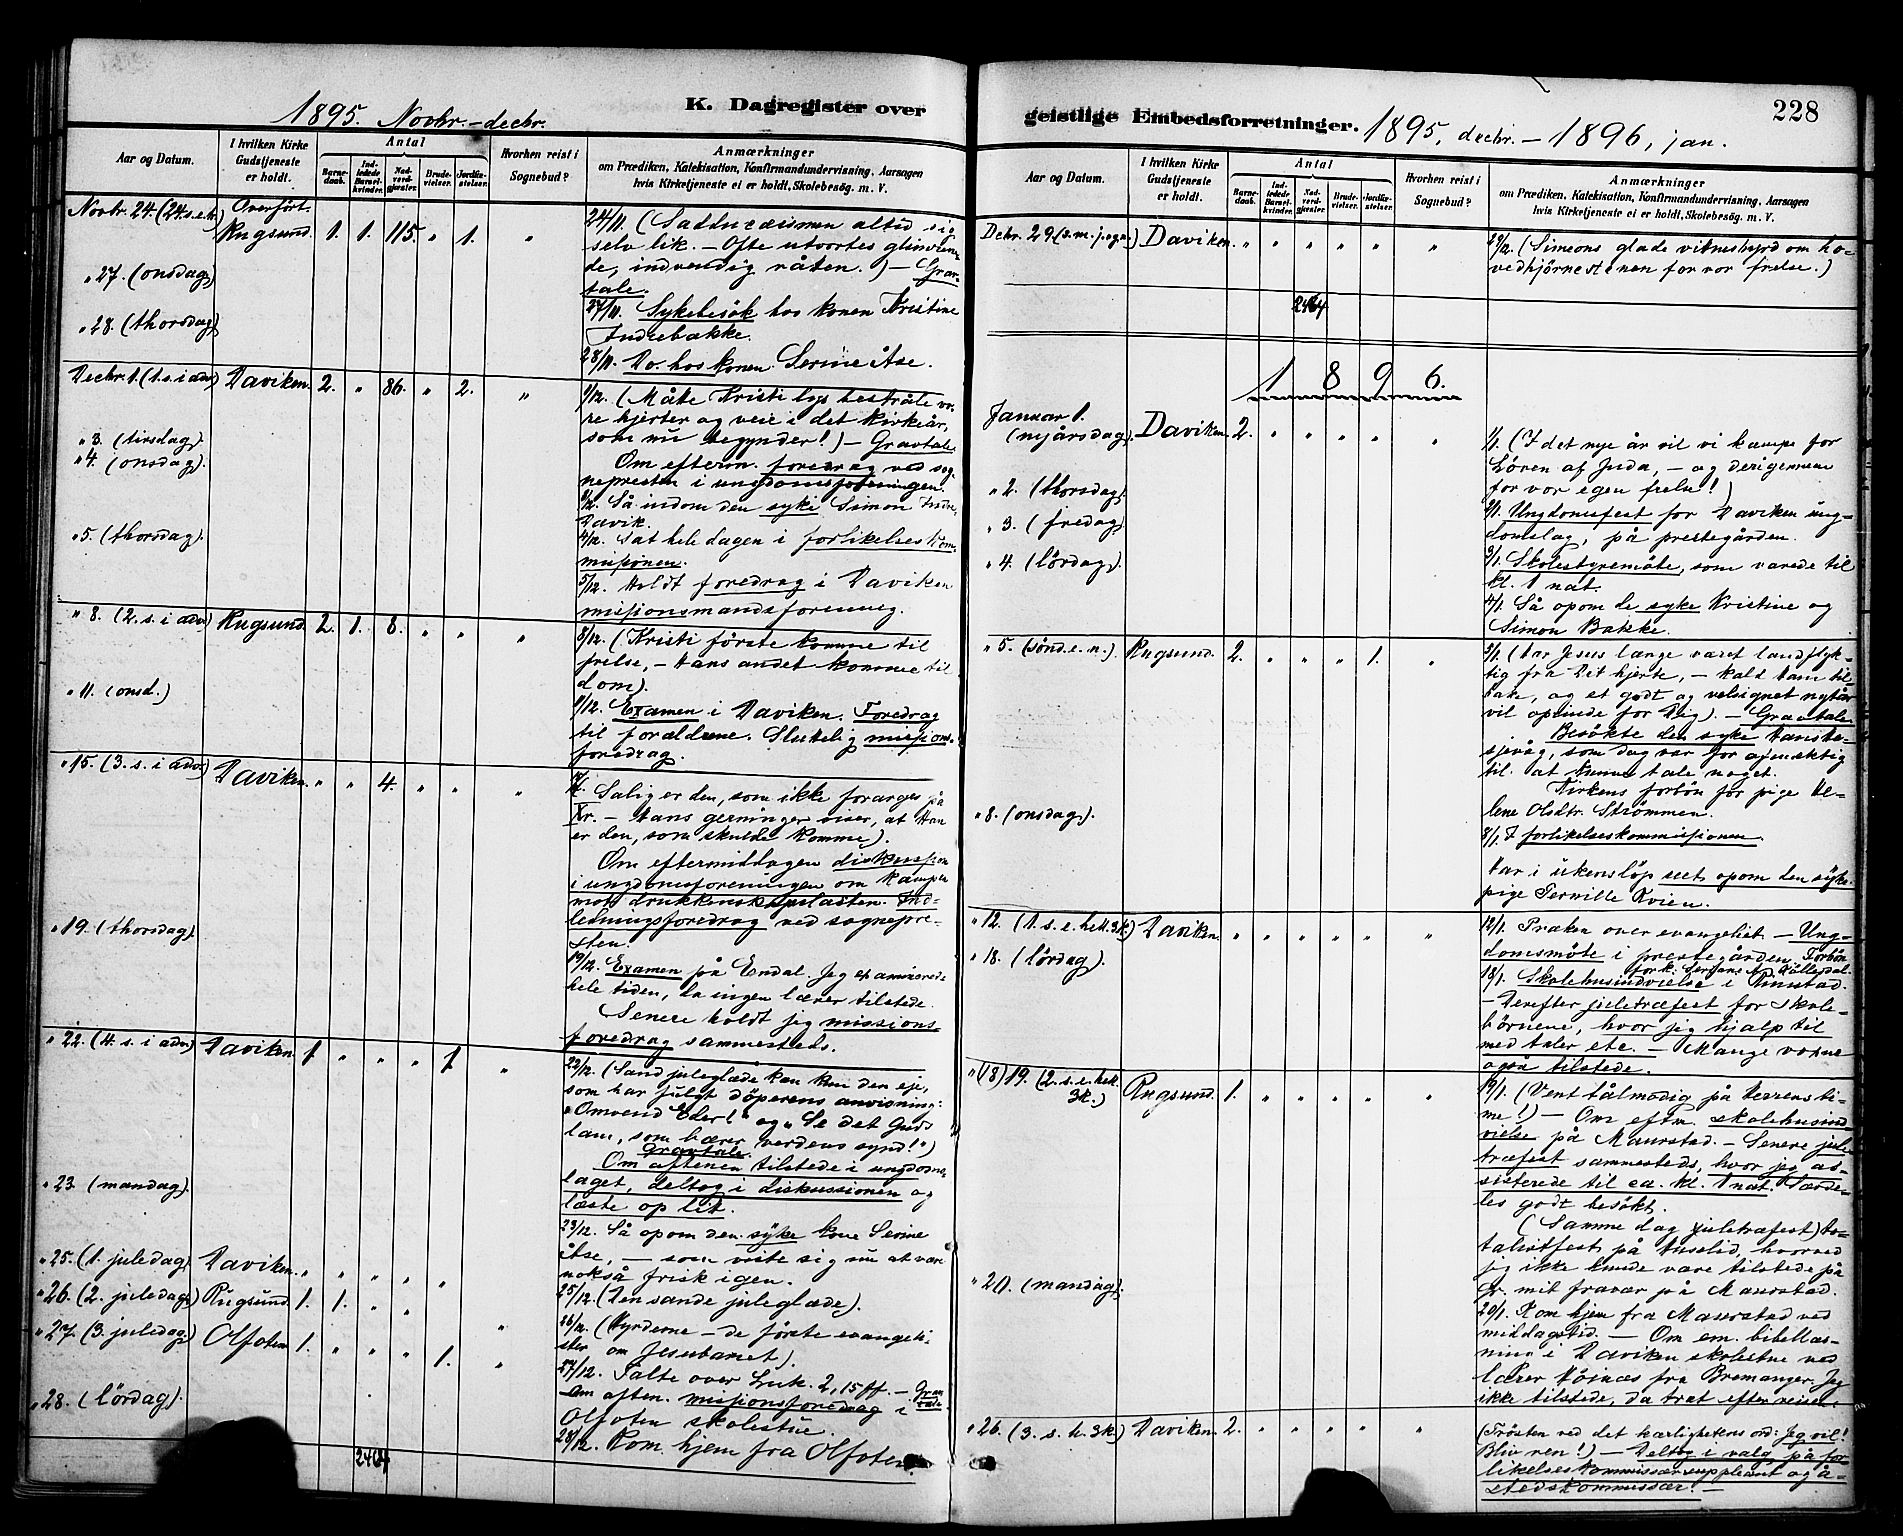 1895. Novbr. - decbr.
K. Dagregister over
Aar og Datum.
I hvilken Kirke Gudstjeneste er holdt.
Antal
Barne-daab.
Ind-ledede Barsel-kvinder.
Nad-verd-gjæster.
Brude-vielser.
Jordfæ-stelser.
Hvorhen reist i Sognebud?
Anmærkninger
om Prædiken, Katekisation, Konfirmandundervisning, Aarsagen
hvis Kirketjeneste ei er holdt, Skolebesøg. m. V.
Novbr. 24. (24. s. e. tr.) Overført.
Rugsund. 1. 1. 115. " 1. "
24/11. (Sadducæismen altid sig
selv lik. – Ofte utvortes glinsen-
de, indvendig råtten.) – Grav-
tale.
" 27. (onsdag)
27/11. Sykebesök hos konen Kristine
Indrebakke.
" 28. (thorsdag)
28/11. Do. hos konen Serine Åse.
Decbr. 1. (1. s. i adv) Daviken. 2. " 86. " 2. "
1/12. (Måtte Kristi lys bestråle vo-
re hjerter og veie i det kirkeår,
som nu begynder!) – Gravtale.
Om efterm. foredrag ved sog-
nepresten i ungdomsforeningen.
" 3. (tirsdag)
3/12. Så indom den syke Simon Indre-
Davik.
" 4. (onsdag).
4/12. Sat hele dagen i forlikelseskom-
missionen.
" 5. (thorsdag).
5/12. Holdt foredrag i Daviken
missionsmandsforening.
" 8. (2. s. i adv) Rugsund. 2. 1. 8. " " "
8/12. (Kristi første komme til
frelse, – hans andet komme til
dom).
" 11. (onsd.)
11/12. Examen i Daviken. Foredrag
til forældrene. Slutelig missions-
foredrag.
" 15. (3. s. i adv) Daviken. " " 4. " " "
Salig er den, som ikke forarges på
Kr. – Hans gerninger viser, at Han
er den, som skulde komme).
Om eftermiddagen diskussion
i ungdomsforeningen om kampen
mot drukkenskapslasten. Ind-
ledningsforedrag ved sognepre-
sten.
" 19. (thorsdag)
19/12. Examen på Endal. Jeg examinerede
hele tiden, da ingen lærer tilstede.
Senere holdt jeg missions-
foredrag sammesteds.
" 22. (4. s. i adv) Daviken. 1. " " " 1. "
22/12. (Sand juleglæde kan kun den eje,
som har fulgt döperens anvisning:
"Omvend Eder!" og "Se det Guds
lam, som bærer verdens synd!")
Gravtale.
Om aftenen tilstede i ungdoms-
laget, deltog i diskussionen og
læste op lit.
" 23. (mandag).
23/12. Så opom den syke kone Serine
Åse, – som viste sig nu at være
nokså frisk igen.
" 25. (1. juledag) Daviken. " " " " "
25/12. (Den sande juleglæde).
" 26. (2. juledag) Rugsund. 1. 1. " "
26/12. (Hyrderne – de første evangeli-
ster om Jesubarnet).
" 27. (3. juledag) Olfoten 1. " " " 1. "
27/12. Talte over Luk. 2, 15 ff. – Grav-tale
Om aften. missionsforedrag i
Olfoten skolestue.
" 28. (lördag).
28/12. Kom hjem fra Olfoten.
2464
geistlige Embedsforretninger.
1895, decbr. – 1896, jan.
228
Aar og Datum.
I hvilken Kirke Gudstjeneste er holdt.
Antal
Barne-daab.
Ind-ledede Barsel-kvinder.
Nad-verd-gjæster.
Brude-vielser.
Jordfæ-stelser.
Hvorhen reist i Sognebud?
Anmærkninger
om Prædiken, Katekisation, Konfirmandundervisning, Aarsagen
hvis Kirketjeneste ei er holdt, Skolebesøg. m. V.
Decbr. 29. (s. m. j. og n.) Daviken. " " " " " "
29/12. (Simeons glade vitnesbyrd om ho-
vedhjörnestenen for vor frelse.)
2464
1896.
Januar 1.
(nyårsdag). Daviken. 2. " " " " "
1/1. (I det nye år vil vi kampe for
Löven af Juda, – og derigennem
for vor egen frelse!)
" 2. (thorsdag).
2/1. Ungdomsfest for Daviken ung-
domslag, på prestegården.
" 3. (fredag)
3/1. Skolestyremöte, som varede til
kl. 1 nat.
" 4. (lördag).
4/1. Så opom de syke Kristine og
Simon Bakke.
" 5. (sönd. e. n.). Rugsund. 2. " " " 1. "
5/1. (Har Jesus længe været landflyk-
tig fra Dit hjerte, – kald ham til-
bake, og et godt og velsignet nytår
vil oprinde for Dig). – Gravtale.
Besökte den syke Hans
som dog var for afmektig
til at kunne tale noget.
Kirkens forbön for pige He-
lene Olsdtr. Strömmen.
" 8. (onsdag).
8/1. I forlikelseskommissionen.
Har i ukens löp set opom den syke
pige Pernille Kvien.
" 12. (1. s. e. hell. 3k.) Daviken. " " " " " "
12/1. Præken over evangeliet. – Ung-
domsmöte i prestegården. Forbön
" 18. (lördag).
18/1. Skolehusindvielse i Rimstad.
– Derefter juletræfest for skole-
börnene, hvor jeg hjalp til
med taler etc. – Mange voxne
også tilstede.
" (18) 19. (2. s. e. hell. 3k.) Rugsund. 1. " " " " "
19/1. (Vent tålmodig på Herrens ti-
me!) – Om eftm. skolehusind-
vielse på Maurstad. – Senere jule-
træfest sammesteds, hvor jeg as-
sisterede til ca. kl. 1 nat. Særde-
les godt besökt.
(Samme dag juletræfest) to-
talistfest på hvorved
jeg ikke kunde være tilstede på
gr. mit fravær på Maurstad.
" 20. (mandag).
20/1. Kom hjem fra Maurstad ved
middagstid. – Om em. bibellæs-
ning i Daviken skolestue ved
lærer fra Bremanger. Jeg
ikke tilstede, da træt efter reisen.
" 26. (3. s. h. 3k) Daviken. 2. " " " " "
(Trösten ved det kærlighetens ord: Jeg vil!
Bliv ren!) – Deltog i valg på for-
likelseskommissærsuppleant og å-
stedskommissær. –